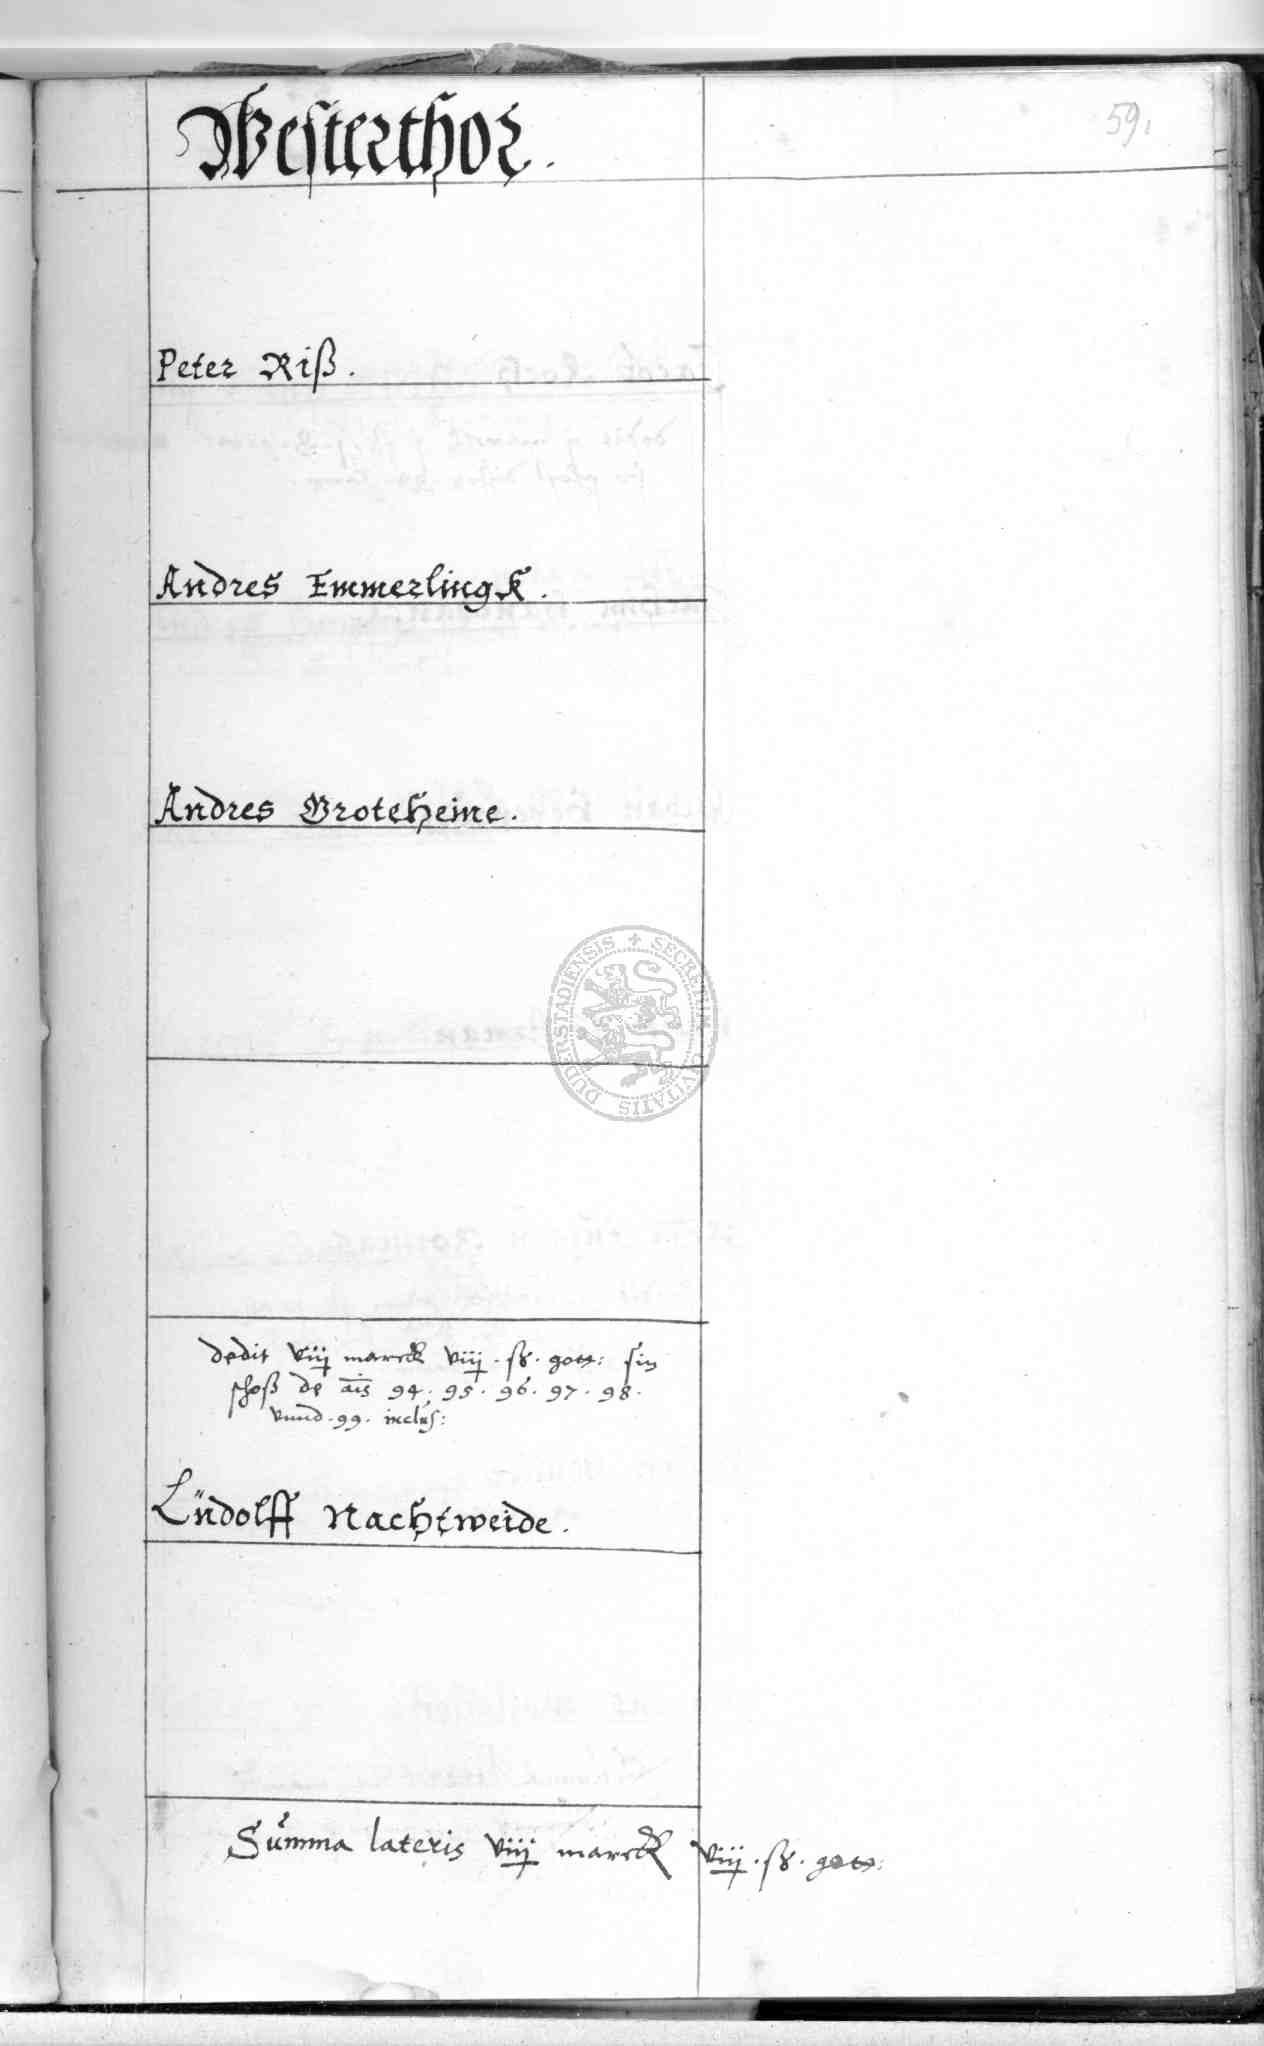 Westerthor.
59.
Peter Riß.
Andres Emmerlingk.
Andres Groteheine.
SECRETUM CIVITATIS DUDERSTADIENSIS
dedit viij marck viij. ß. gott: sin
schoß de ais 94. 95. 96. 97. 98.
vnnd. 99. inclus:
Lüdolff Nachtweide.
Summa lateris viij marck viij. ß. gott: